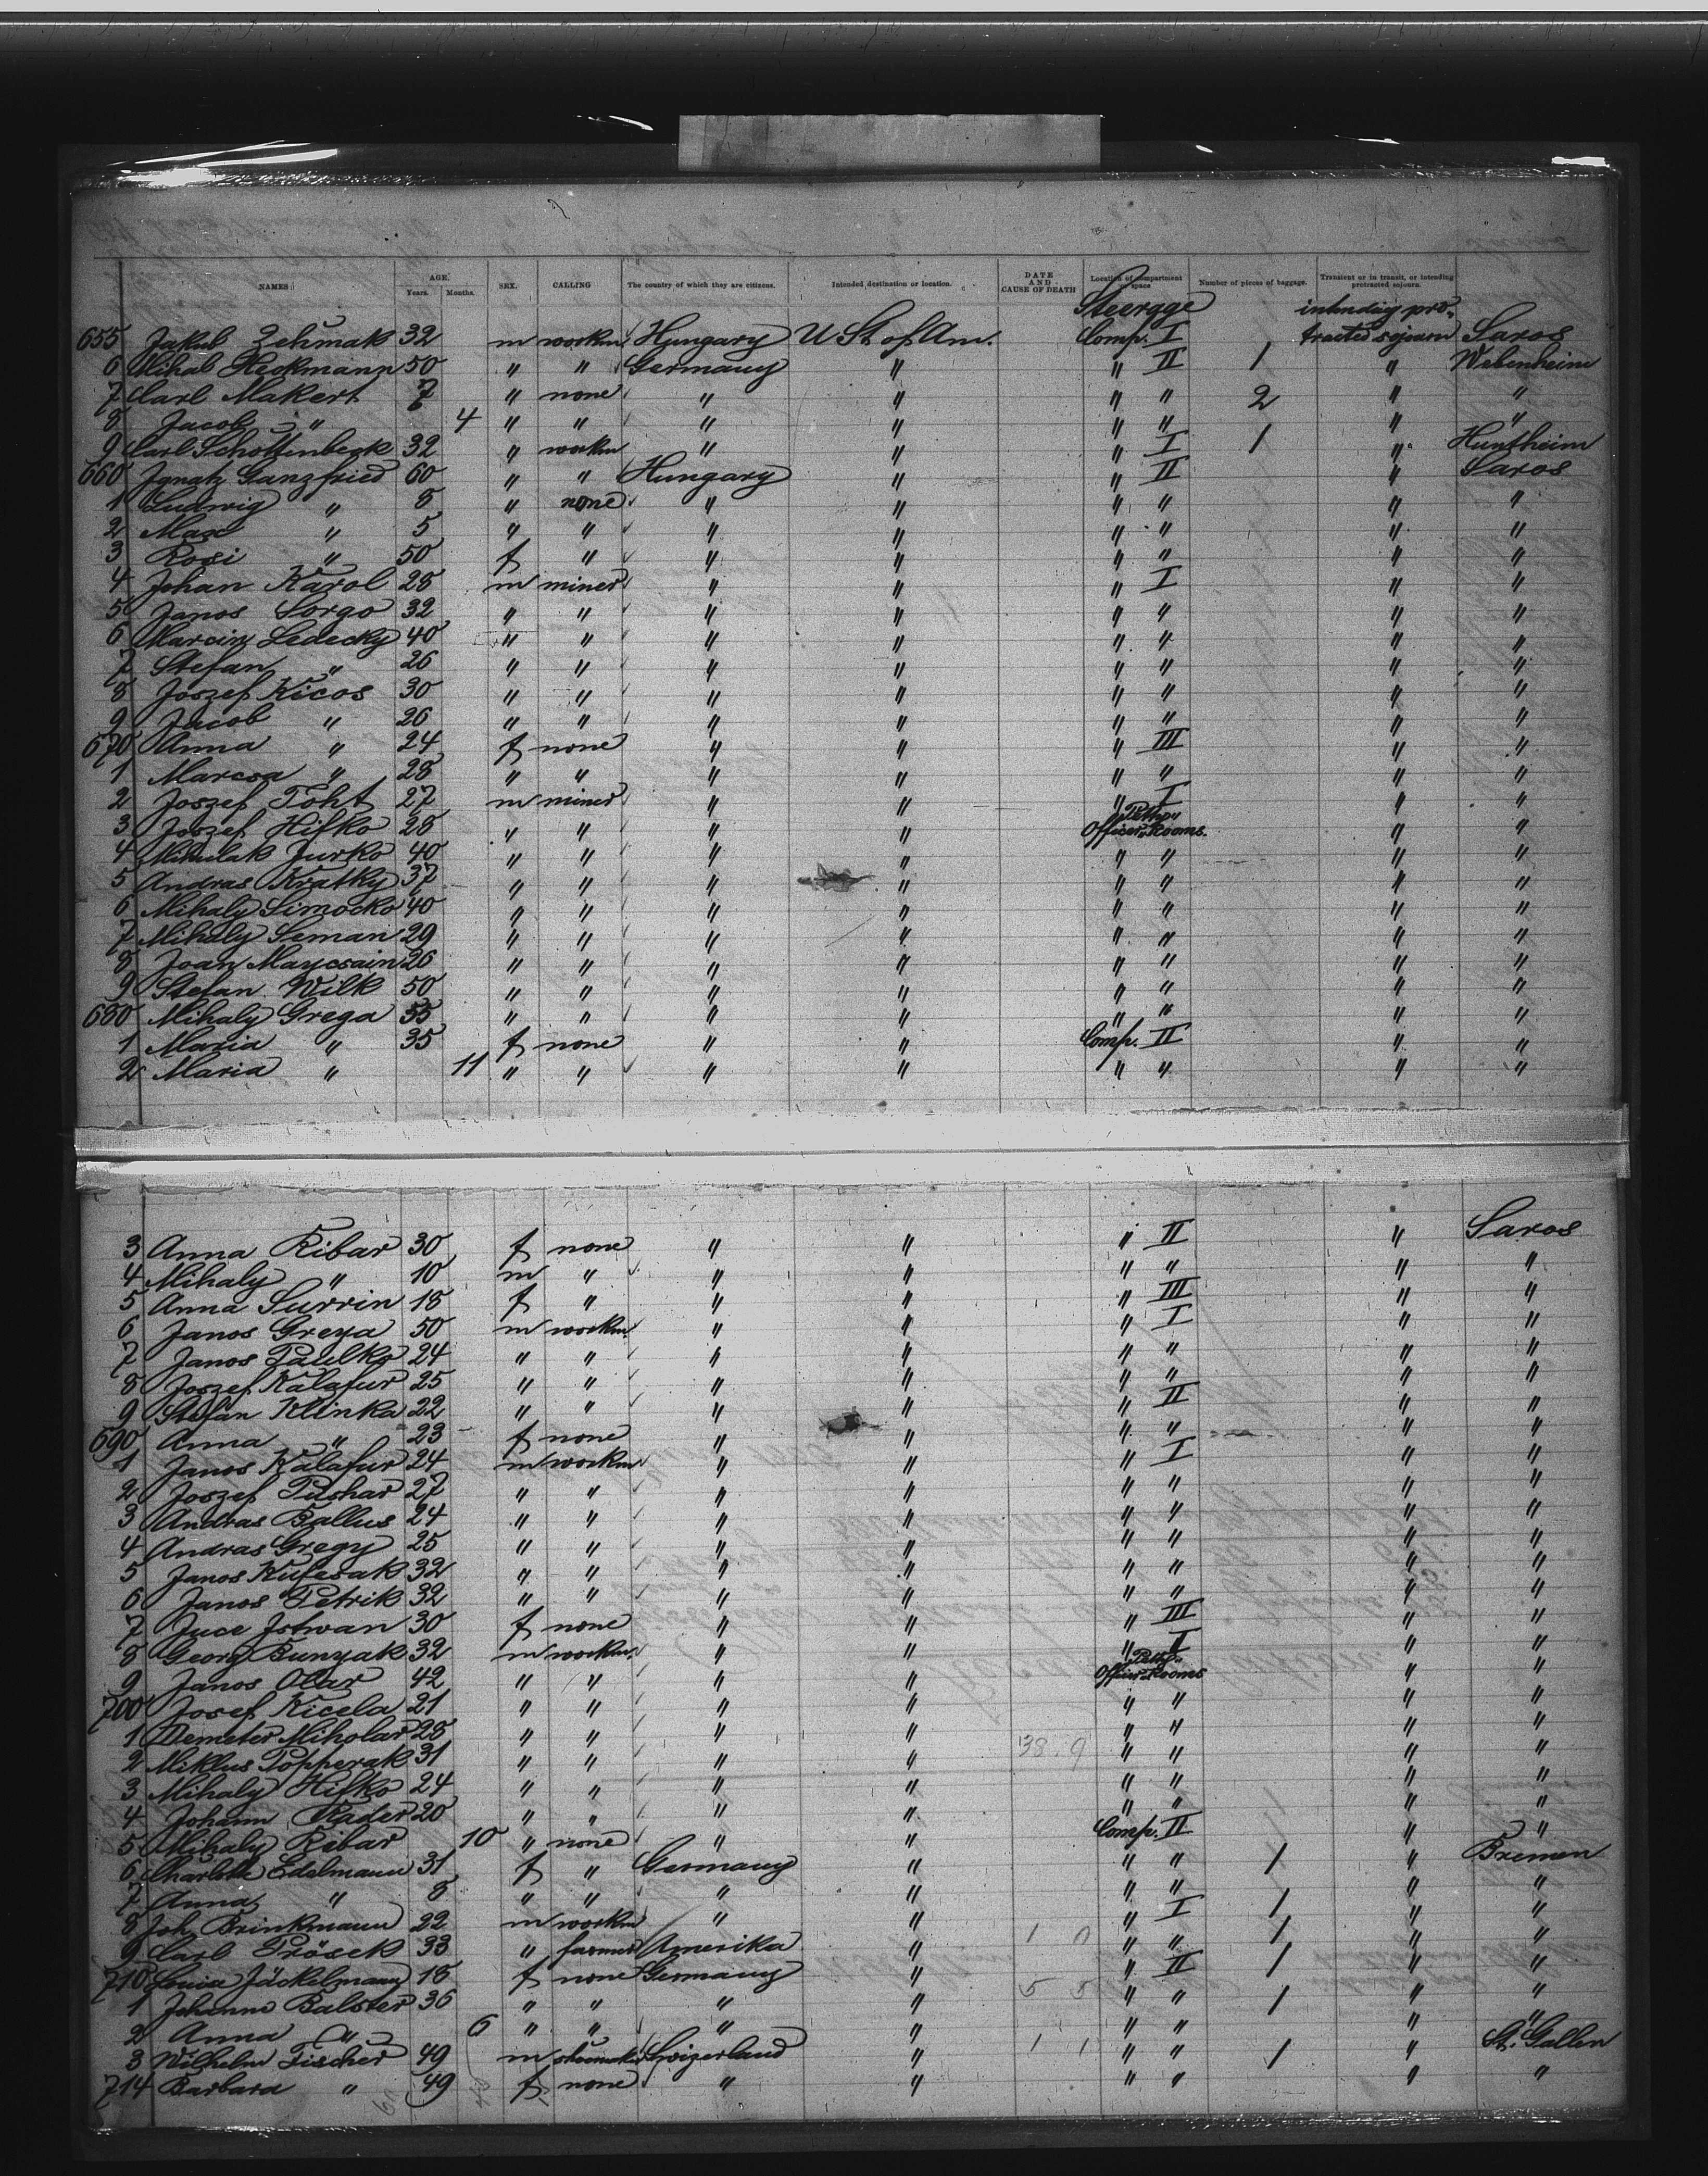 NAMES AGE. Years. Months. SEX. CALLING The country of which they are citizens. Intended destination or location. DATE AND CAUSE OF DEATH Location of compartment or space Number of pieces of baggage. Transient or in transit, or intending protracted sojourn.
Steerage intending pro-
655 Jakub Zehmak 32 m workm. Hungary U St of Am. Comp. I tracted sojourn Saros
6 Mihal Heckmann 50 " " Germany " " II 1 " Webenheim
7 Carl Makert 7 " none " " " " 2 " "
8 Jacob " 4 " " " " " " " "
9 Carl Schottenbeck 32 " workm " " " I 1 " Huntheim
660 Ignatz Ganzfried 60 " " Hungary " " II " Saros
1 Ludwig " 8 " none " " " " " "
2 Max " 5 " " " " " " " "
3 Rosi " 50 f " " " " " " "
4 Johan Karol 28 m miner " " " I " "
5 Janos Sorgo 32 " " " " " " " "
6 Marcin Ledecky 40 " " " " " " " "
7 Stefan " 26 " " " " " " " "
8 Joszef Kicos 30 " " " " " " " "
9 Jacob " 26 " " " " " " " "
670 Anna " 24 f none " " " III " "
1 Marcsa " 28 " " " " " " " "
2 Joszef Toht 27 m miner " " " I " "
3 Joszef Hifko 28 " " " " "Petty" Officer Rooms. " "
4 Mihulak Jurko 40 " " " " " " " "
5 Andras Kratky 37 " " " " " " " "
6 Mihaly Simocko 40 " " " " " " " "
7 Mihaly Seman 29 " " " " " " " "
8 Joan Maycsain 26 " " " " " " " "
9 Stefan Wilk 50 " " " " " " " "
680 Mihaly Grega 35 " " " " " " " "
1 Maria " 35 f none " " Comp. II " "
2 Maria " 11 " " " " " " " "
3 Anna Ribar 30 f none " " " II " Saros
4 Mihaly " 10 m " " " " " " "
5 Anna Surrin 18 f " " " " III " "
6 Janos Greya 50 m workm. " " " I " "
7 Janos Paulko 24 " " " " " " " "
8 Joszef Kalafur 25 " " " " " " " "
9 Stefan Klinka 22 " " " " " II " "
690 Anna " 23 f none " " " " " "
1 Janos Kalafur 24 m workm " " " I " "
2 Joszef Pushar 27 " " " " " " " "
3 Andras Ballus 24 " " " " " " " "
4 Andras Gregy 25 " " " " " " " "
5 Janos Kufesak 32 " " " " " " " "
6 Janos Petrik 32 " " " " " " " "
7 Juce Istwan 30 f none " " " III " "
8 Georg Bunyak 32 m workm. " " " I " "
9 Janos Olar 42 " " " " "Petty" Officer Rooms " "
700 Josef Kicela 21 " " " " " " " "
1 Demeter Miholar 28 " " " " " " " "
2 Miklus Popperak 31 " " " " 38.9 " " " "
3 Mihaly Hifko 24 " " " " " " " "
4 Johann Rader 20 " " " " " " " "
5 Mihaly Ribar 10 " none " " Comp. II " "
6 Charlotte Edelmann 31 f " Germany " " " 1 " Bremen
7 Anna " 8 " " " " " " " "
8 Joh. Brinkmann 22 m workm " " " I 1 " "
9 Carl Prösek 33 " farmer Amerika " 1 0 " " 1 " "
710 Louisa Jäckelmann 18 f none Germany " " II 1 " "
1 Johanne Balster 36 " " " " 5 5 " " 1 " "
2 Anna " 6 " " " " " " " "
3 Wilhelm Fischer 49 m shoemaker Swizerland " 1 1 " " 1 " St. Gallen
714 Barbara " 49 f none " " " " " "